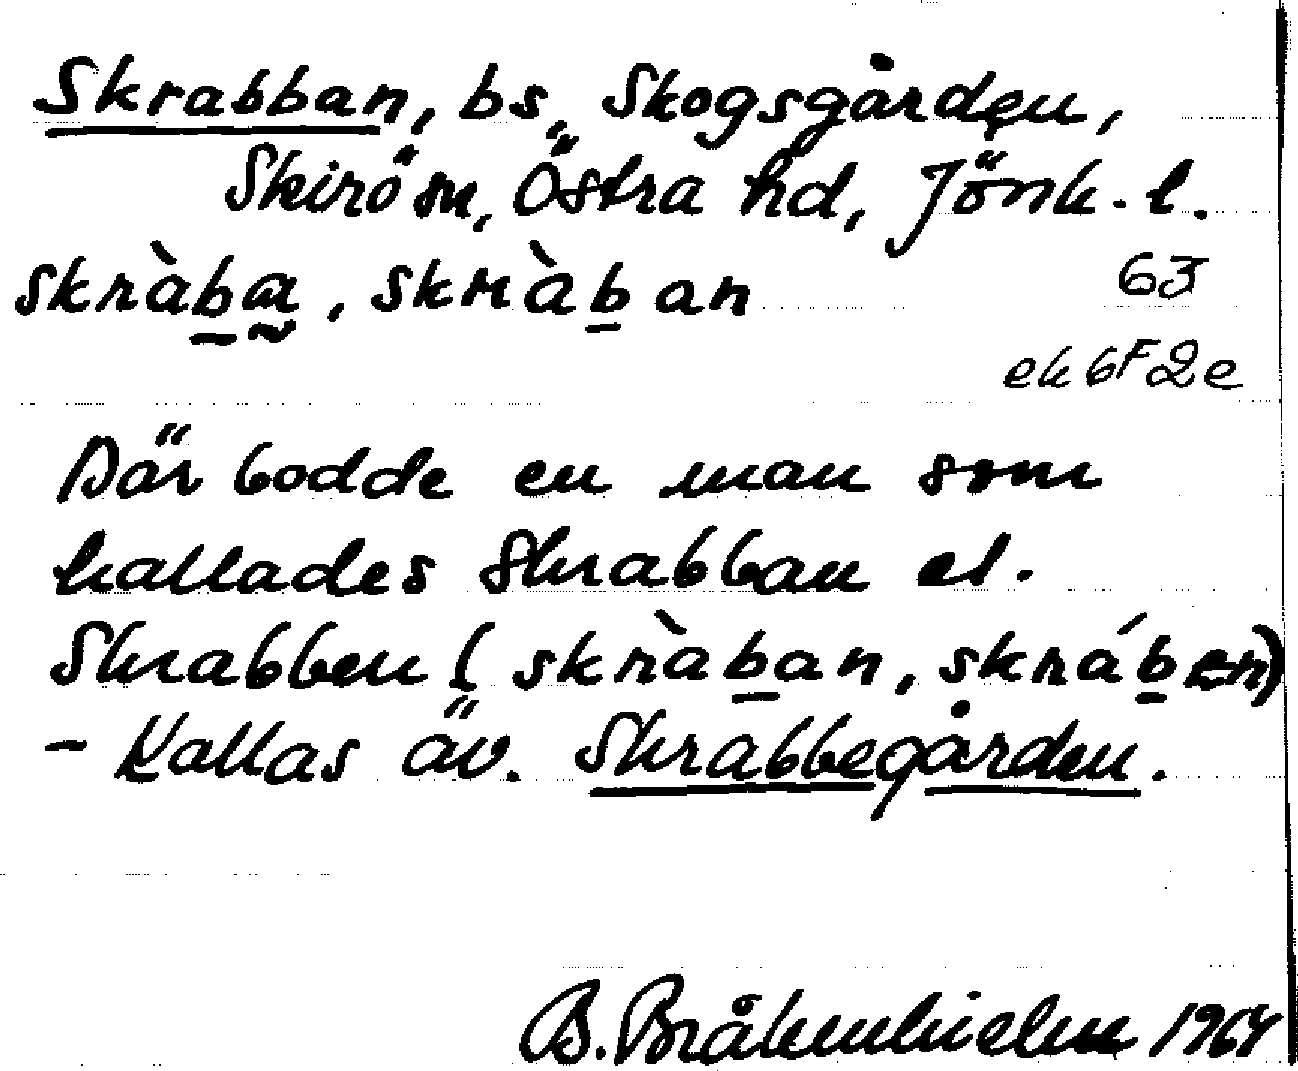 Skrabban, bs, Skogsgården,
Skirö sn, Östra hd, Jönk. l.
skràb̲a̰, skràb̲an 63
ek 6F2e
Där bodde en man som
kallades Skrabban el.
Skrabben (skràb̲an, skráb̲en)
- Kallas äv. Skrabbegården.
B. Bråkenhielm 1964